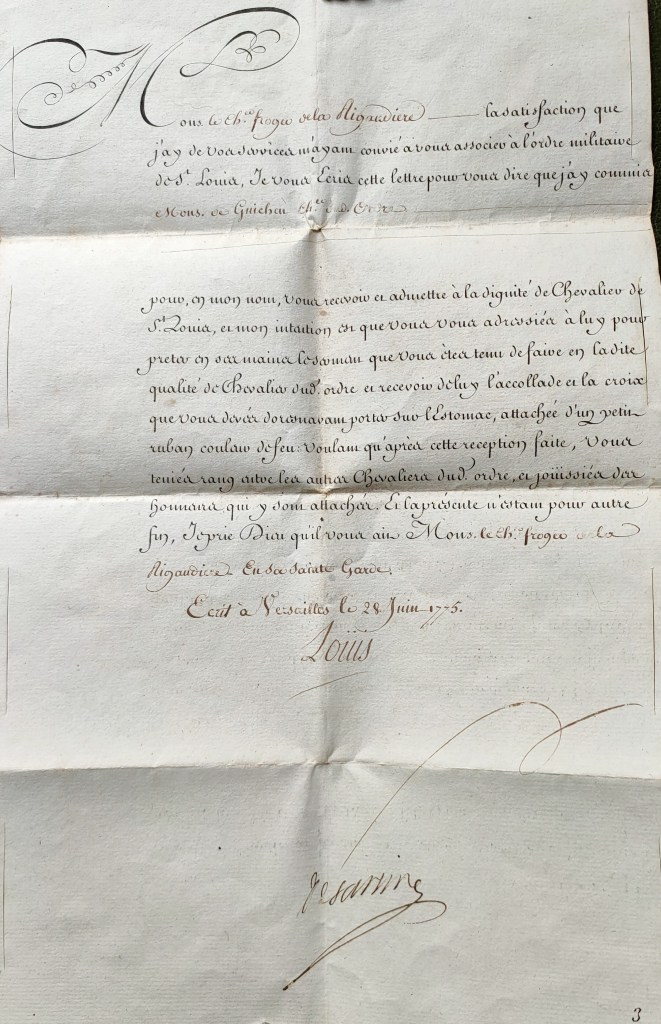 Mons. le Ch.er froger de la Rigaudiere la satisfaction que
j'ay de vos services m'ayant convié à vous associer à l'ordre militaire
de S.t Louis, Je vous Ecris cette lettre pour vous dire que j'ay commis
Mons. de Guichen Ch.er d. d. Ordre
pour, en mon nom, vous recevoir et admettre à la dignité de Chevalier de
S.t Louis, et mon intention est que vous vous adressiés à luy pour
preter en ses mains le serment que vous ètes tenu de faire en la dite
qualité de Chevalier dud. ordre et recevoir de luy l'accollade et la croix
que vous devés doresnavant porter sur l'Estomac, attachée d'un petit
ruban couleur de feu: Voulant qu'après cette reception faite, vous
teniés rang entre les autres Chevaliers dud. ordre, et joüissiés des
honneurs qui y sont attachés. Et la présente n'estant pour autre
fin, Je prie Dieu qu'il vous ait Mons. le Ch.er froger de la
Rigaudiere En sa sainte Garde.
Ecrit à Versailles le 28 Juin 1775.
Loüis
De sartine
3